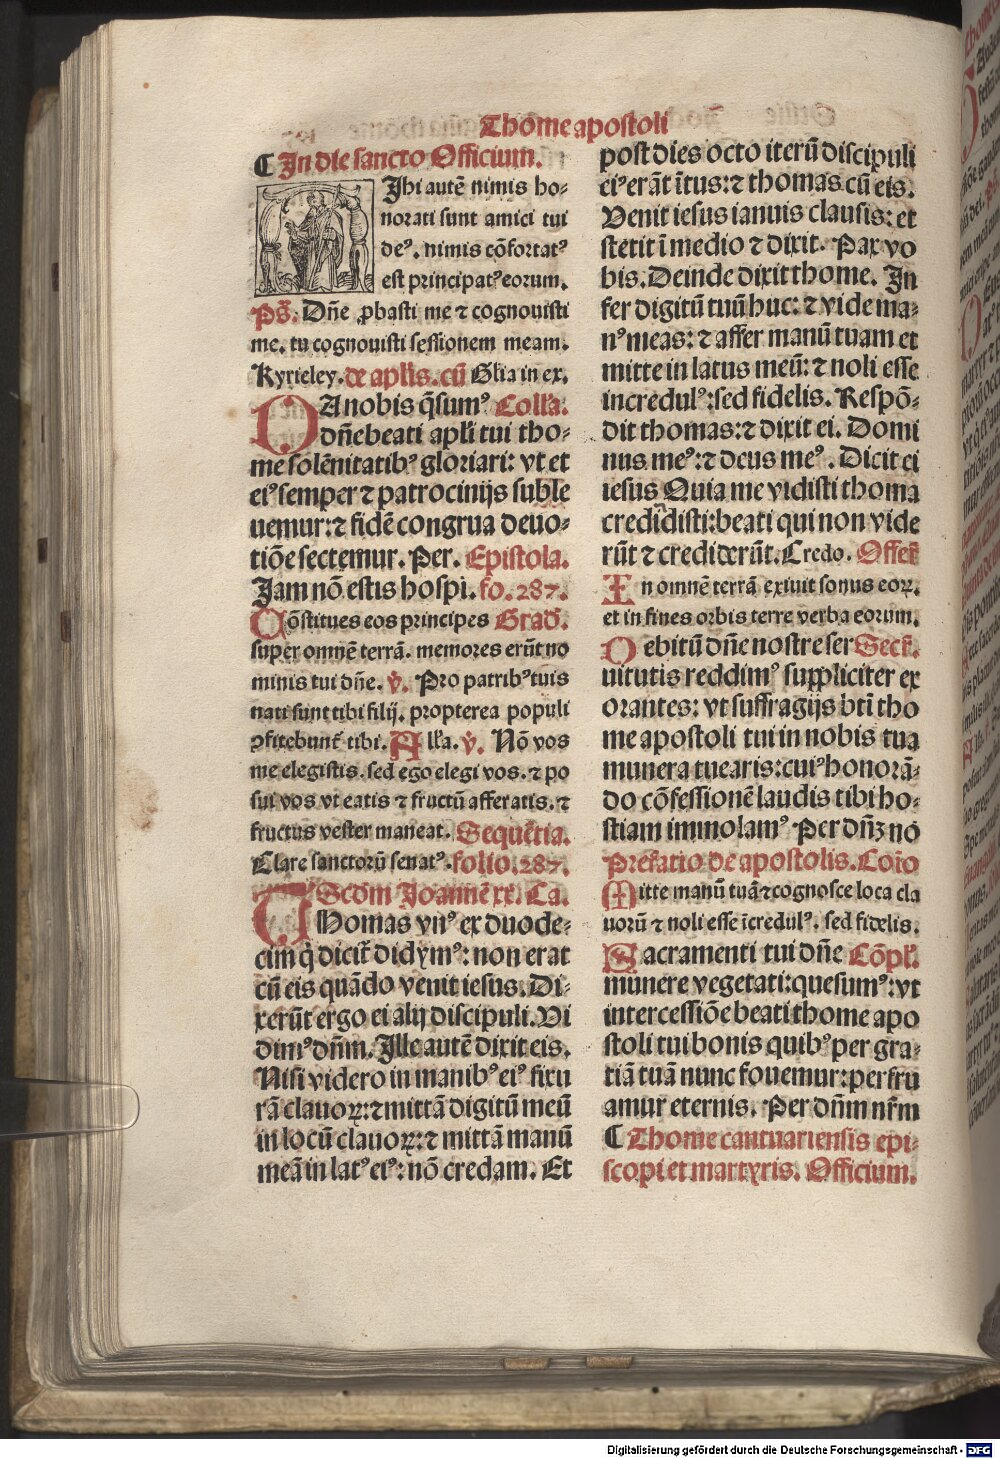 Thome apostoli
¶ In die sancto Officium.
MIhi autē nimis ho-
norati sunt amici tui
deꝰ. nimis cōfortatꝰ
est principatꝰ eorum.
Ps̄. Dn̄e ꝓbasti me ⁊ cognouisti
me. tu cognouisti sessionem meam.
Kyrieley. de apl̄is. cū Gl̄ia in ex.
DA nobis q̄sumꝰ Coll̄a.
dn̄e beati apl̄i tui tho-
me solēnitatibꝰ gloriari: vt et
eiꝰ semper ⁊ patrocinijs suble
uemur: ⁊ fidē congrua deuo-
tiōe sectemur. Per. Epistola.
Iam nō estis hospi. fo. 287.
Cōstitues eos principes Grad̄.
super omnē terrā. memores erūt no
minis tui dn̄e. ℣. Pro patribꝰ tuis
nati sunt tibi filij. propterea populi
ꝯfitebunt̄ tibi. All̄a. ℣. Nō vos
me elegistis. sed ego elegi vos. ⁊ po
sui vos vt eatis ⁊ fructū afferatis. ⁊
fructus vester maneat. Sequētia.
Clare sanctorū senatꝰ. folio. 287.
Scd̄m Joannē xx. Ca.
THomas vnꝰ ex duode-
cim q̄ dicit̄ didymꝰ: non erat
cū eis quādo venit iesus. Di-
xerūt ergo ei alij discipuli. Vi
dimꝰ dn̄m. Ille autē dixit eis.
Nisi videro in manibꝰ eiꝰ fixu
rā clauoꝝ: ⁊ mittā digitū meū
in locū clauoꝝ: ⁊ mittā manū
meā in latꝰ eiꝰ: nō credam. Et
post dies octo iterū discipuli
eiꝰ erāt ītus: ⁊ thomas cū eis.
Venit iesus ianuis clausis: et
stetit ī medio ⁊ dixit. Pax vo
bis. Deinde dixit thome. In
fer digitū tuū huc: ⁊ vide ma-
nꝰ meas: ⁊ affer manū tuam et
mitte in latus meū: ⁊ noli esse
incredulꝰ: sed fidelis. Respō-
dit thomas: ⁊ dixit ei. Domi
nus meꝰ: ⁊ deus meꝰ. Dicit ei
iesus Quia me vidisti thoma
credidisti: beati qui non vide
rūt ⁊ crediderūt. Credo. Offer̄
In omnē terrā exiuit sonus eoꝝ.
et in fines orbis terre verba eorum.
Debitū dn̄e nostre ser Secr̄.
uitutis reddimꝰ suppliciter ex
orantes: vt suffragijs bt̄i tho
me apostoli tui in nobis tua
munera tuearis: cuiꝰ honorā-
do cōfessionē laudis tibi ho-
stiam immolamꝰ Per dn̄ꝫ nō
Prefatio de apostolis. Coīo
Mitte manū tuā ⁊ cognosce loca cla
uorū ⁊ noli esse īcredulꝰ. sed fidelis.
Sacramenti tui dn̄e Cōpl̄.
munere vegetati: quesumꝰ: vt
intercessiōe beati thome apo
stoli tui bonis quibꝰ per gra-
tiā tuā nunc fouemur: perfru
amur eternis. Per dn̄m nr̄m
¶ Thome cantuariensis epi-
scopi et martyris. Officium.
Digitalisierung gefördert durch die Deutsche Forschungsgemeinschaft - DFG